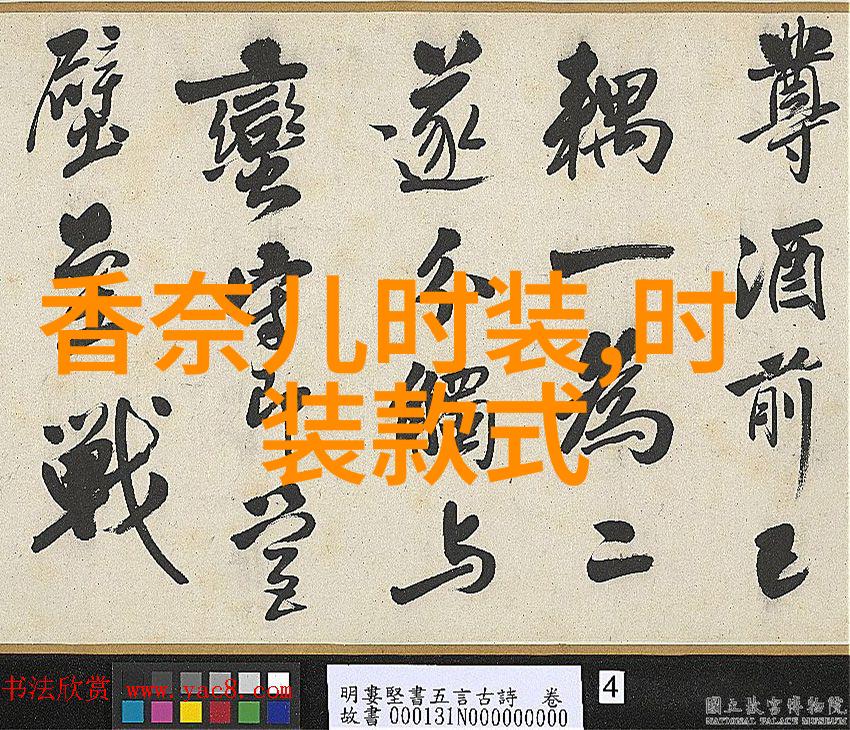 尊酒前已
耦一為二
遂分觸与
蠻守
壁 戰
香奈儿时装,时
装款式
书法欣赏 www.yac8.com
明婁堅書五言古詩 卷
故書000131N000000000
4
國立故宮博物院
NATIONAL PALACE MUSEUM